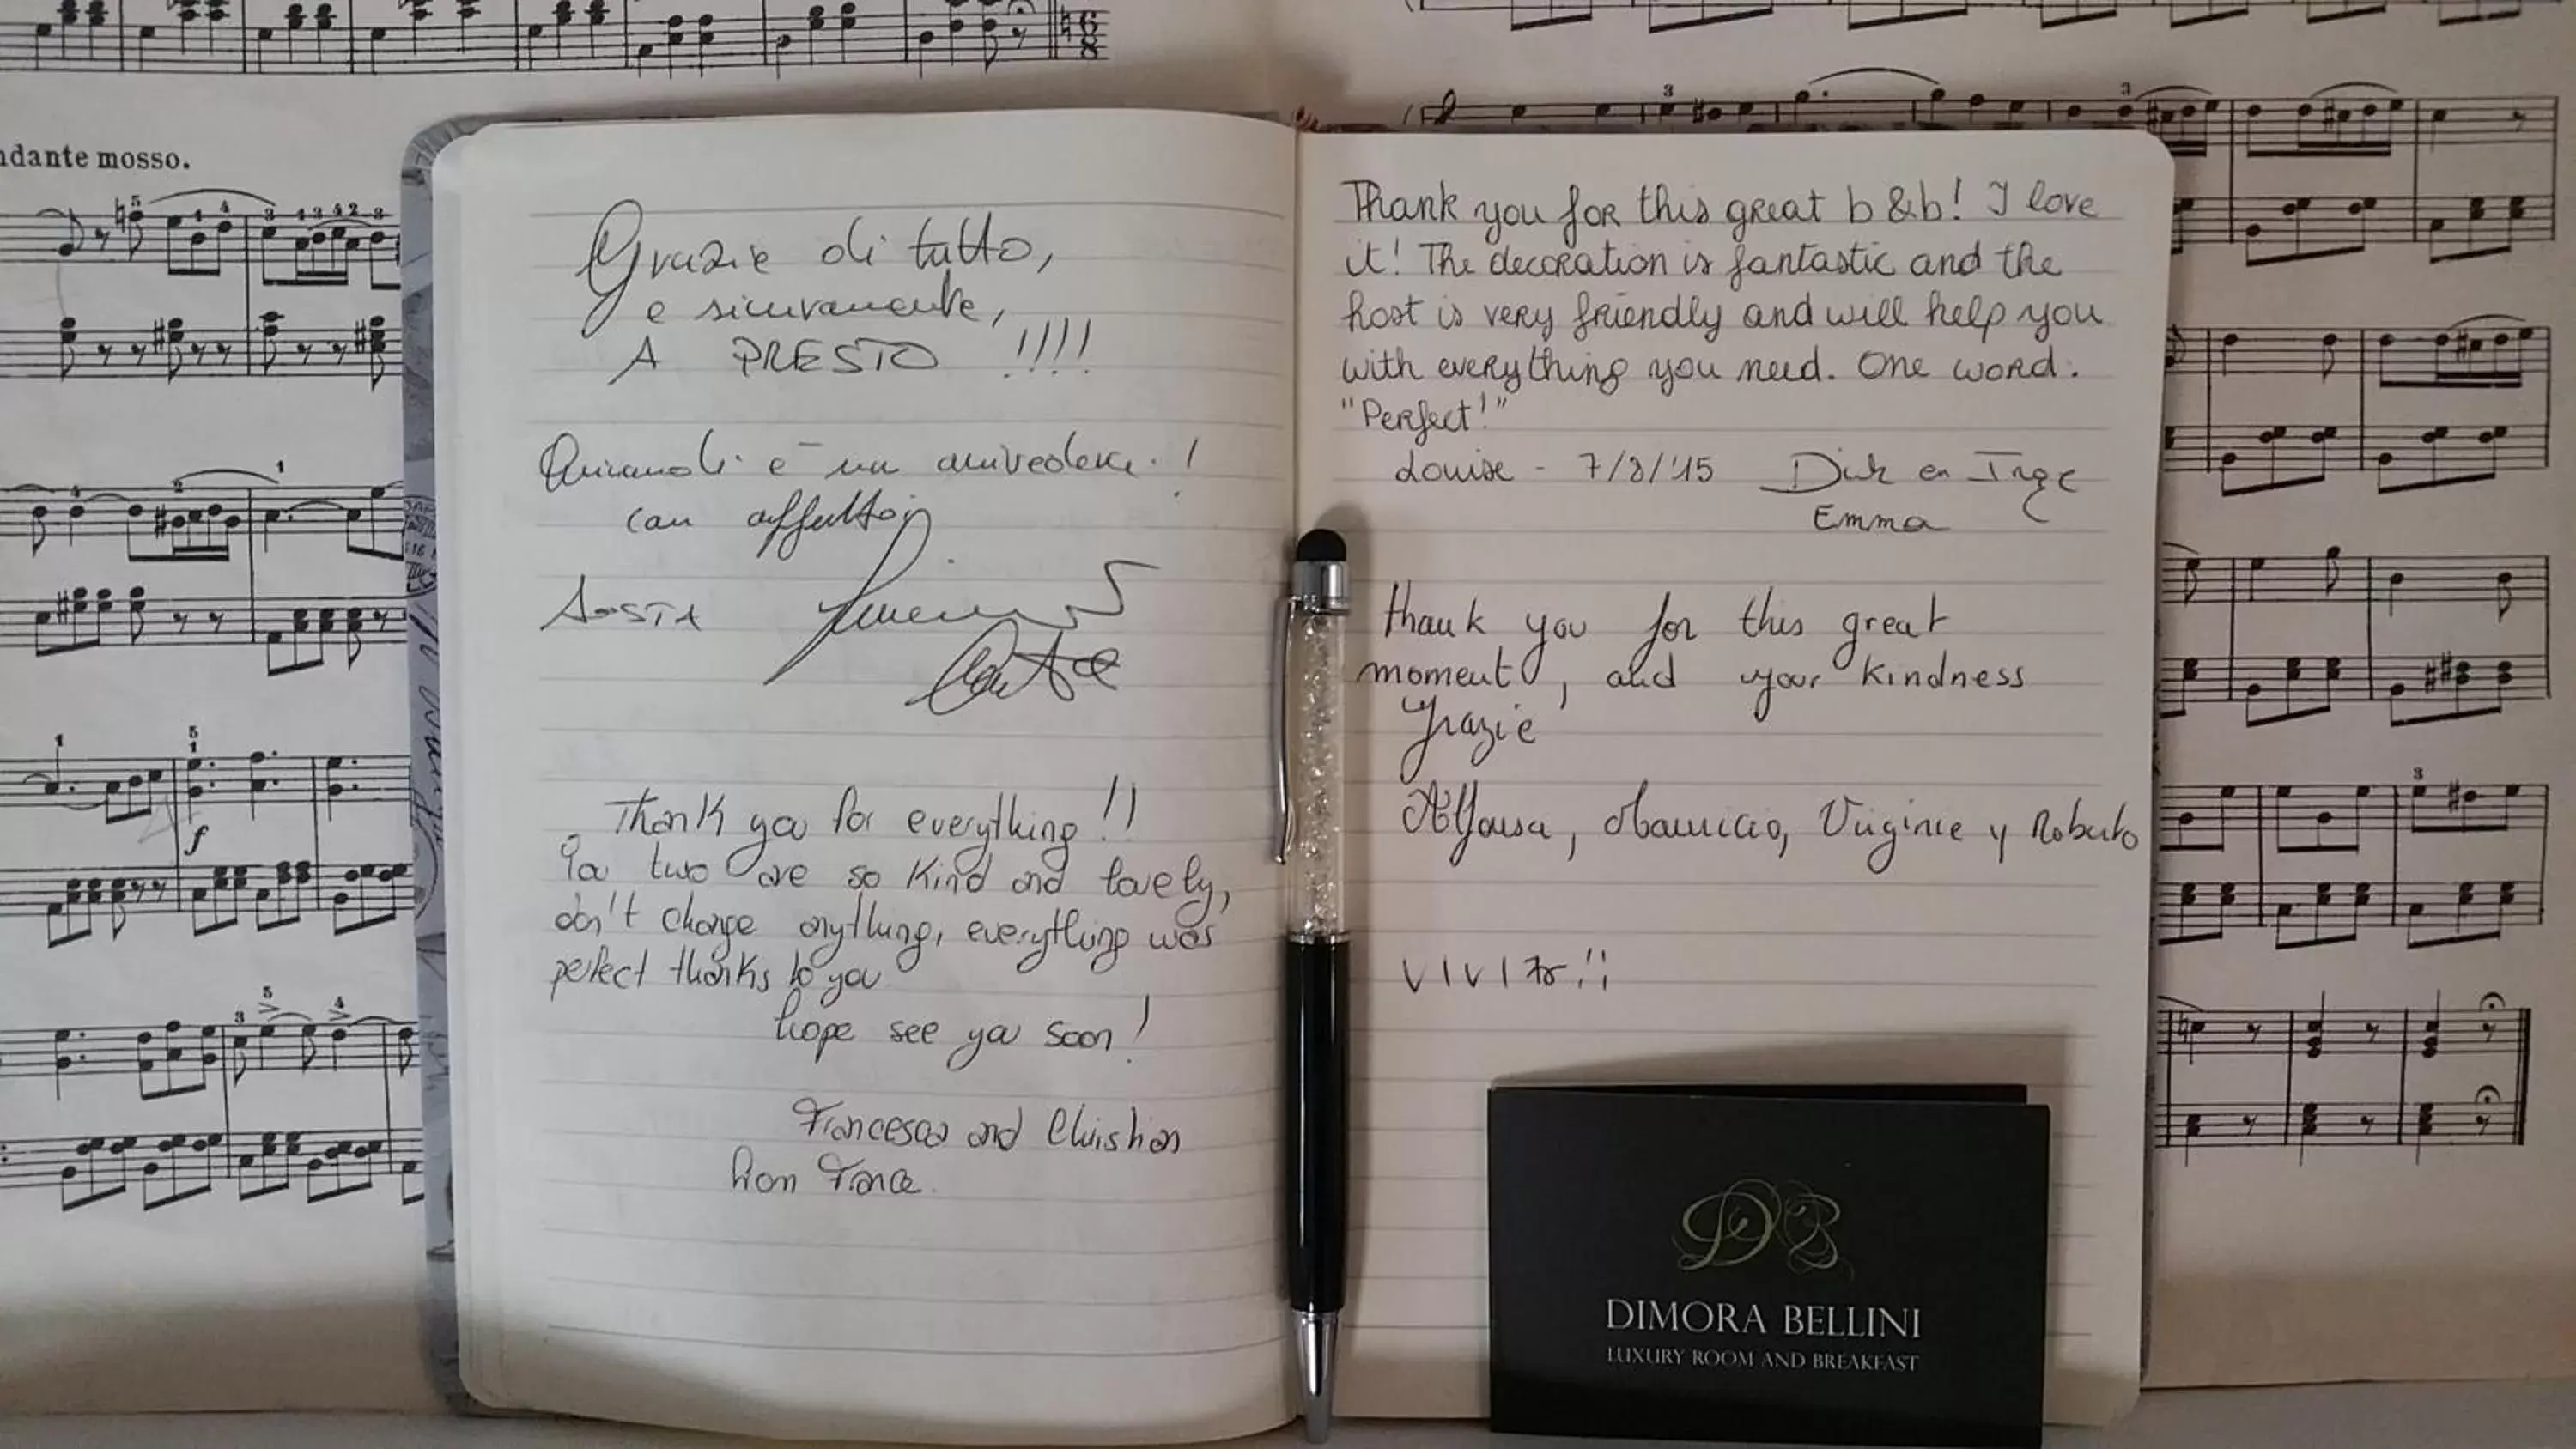 ndante mosso.
Grazie di tutto,
e sicuramente,
A PRESTO !!!!
Quindi è un arrivederci !
con affetto
AOSTA
Thank you for everything !!
You two are so kind and lovely,
don't change anything, everything was
perfect thanks to you
hope see you soon!
Francesca and Christian
from France.
Thank you for this great b&b! I love
it! The decoration is fantastic and the
host is very friendly and will help you
with everything you need. One word:
"Perfect!"
Louise - 7/8/'15 Dirk en Inge
Emma
thank you for this great
moment, and your kindness
Grazie
Mauricio, Virginie y Roberto
DB
DIMORA BELLINI
LUXURY ROOM AND BREAKFAST